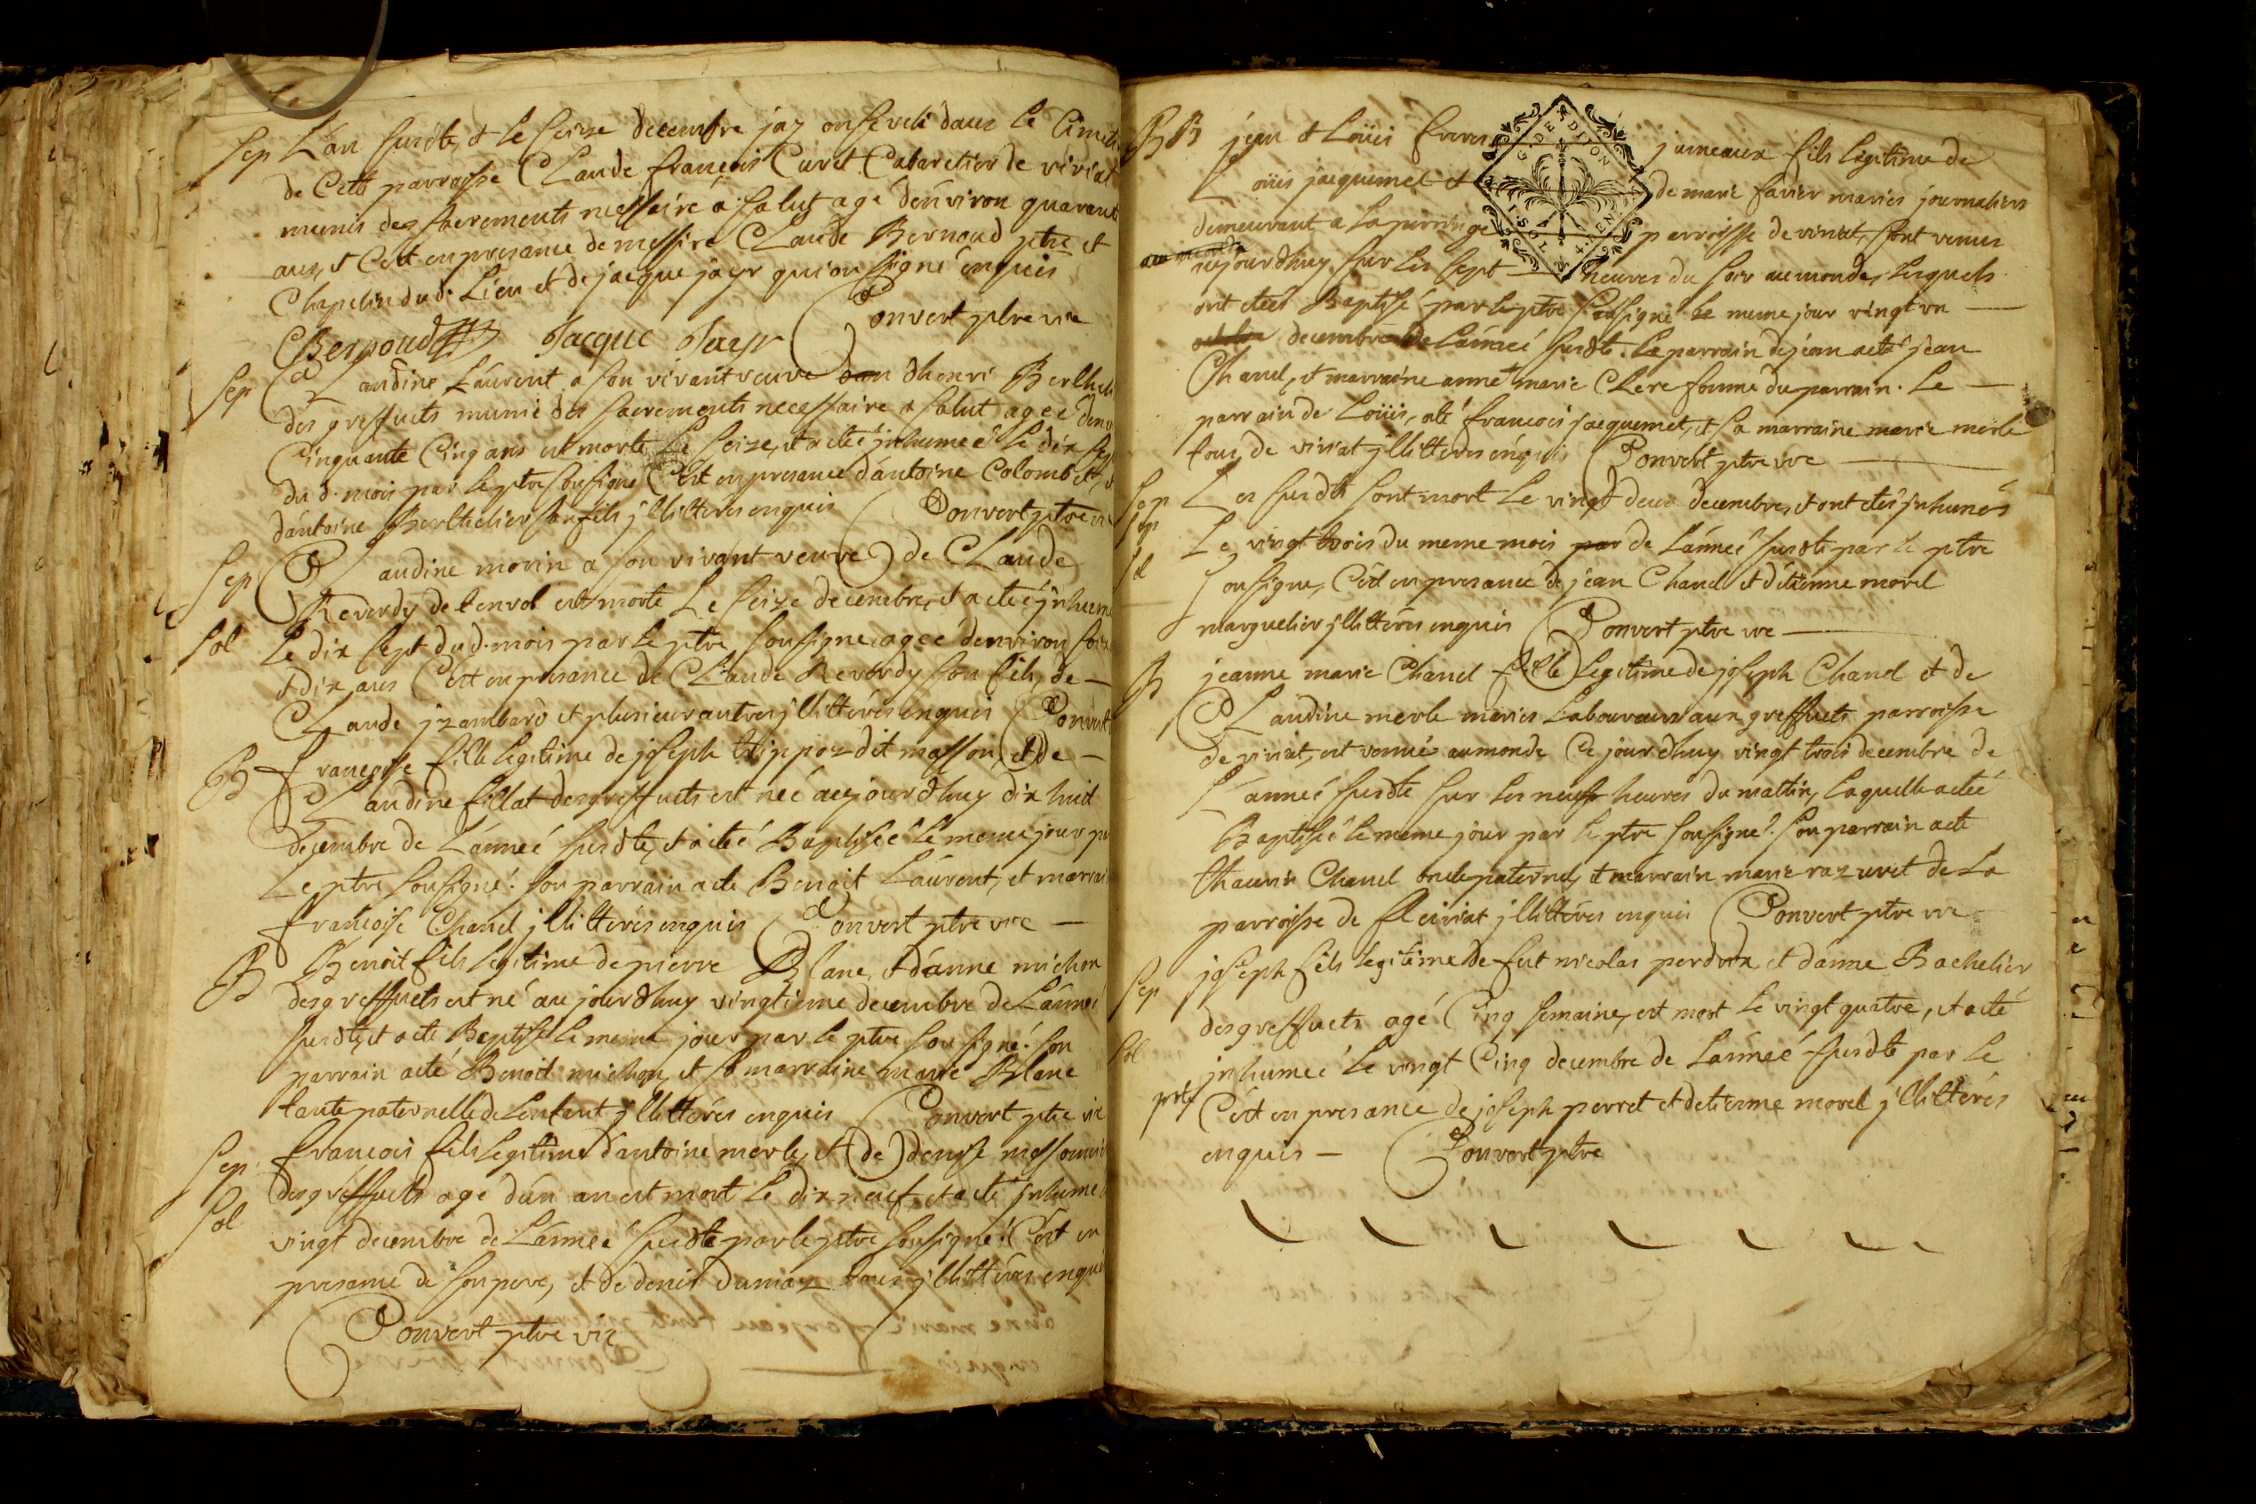 Sep L'an susdte, et le seize decembre jay enseveli dans le Cimet
de Cette parroisse Claude francois Curet Cabaretier de viriat
munis des sacrements nessaire a salut agé d'environ quarant
ans, et C'est en presance de messire Claude Bernoud ptre et
Chapelin dud. Lieu et de jacque jayr qui on signé enquis
CBernoud Jacque Jayr Convert ptre vre
Sep Claudine Laurent a son vivant veuve d'henri Berthel
des greffuets munie des sacrements necessaire a salut agee denv
Cinquante Cinq ans est morte Le seize, et a eteé jnhumeé le dix sep
du d. mois par le ptre soussigné C'est en presance d'antoine Colomb et
d'antoine Berthelier son fils jllittéres enquis Convert ptre vre
Sep Claudine morin a son vivant veuve de Claude
Reverdy de tenvol est morte Le seize decembre, et a eteé jnhume
Sol Le dix sept dud. mois par le ptre soussigne agee denviron soix
et dix ans C'est en presance de Claude Reverdy son fils, de
Claude jzambard et plusieur autres jllittérés enquis Convert
B francoise fille legitime de joseph tripoz dit masson, et de
Claudine fillat des greffuets est neé aujourdhuy dix huit
decembre de L'anneé susdte, et a eteé Baptiseé le meme jour par
Le ptre soussigné. son parrain a ete Benoit Laurent, et marrai
francoise Chanel jllitteres enquis Convert ptre vre
B Benoit fils legitime de pierre Blanc, et d'anne michon
des greffuets est né aujourdhuy vingtieme decembre de L'anneé
susdte, et a ete Baptisé le meme jour par le ptre soussigné. son
parrain a eté Benoit michon, et sa marraine marie Blanc
tante paternelle de L'enfant jllittéres enquis Convert ptre vre
Sep francois fils legitime d'antoine merle, et de denise messonni
des gréffuets agé d'un an est mort le dix neuf, et a eté jnhumé
Sol vingt decembre de L'anneé susdte par le ptre soussigné. C'est en
presance de son pere, et de denis dumaz tous jllittéres enquis
Convert ptre vre
BB jean et Loüis freres jumeaux fils legitime de
Loüis jacquemet et de marie favier mariés journaliers
demeurant a La perringe parroisse de viriat, sont venus
aujourdhuy sur les sept heures du soir au monde, lesquels
ont etes Baptisé par le ptre soussigné le meme jour vingt un
decembre de L'anneé susdte. Le parrain de jean a eté jean
Chanel, et marraine anne marie Clere femme du parrain. Le
parrain de Loüis, a eté francois jacquemet, et sa marraine marie merle
tous de viriat jllitteres enquis Convert ptre vre
Sep Les susdts sont mort Le vingt deux decembre, et ont etes jnhumés
Sep Le vingt trois du meme mois par de L'anneé susdte par le ptre
Sol soussigne, C'est en presance de jean Chanel et d'etienne morel
marguelier jllittéres enquis Convert ptre vre
B jeanne marie Chanel fille Legitime de joseph Chanel et de
Claudine merle mariés Laboureurs aux greffuets parroisse
de viriat, est venue au monde Ce jourdhuy vingt trois decembre de
L'anneé susdte sur les neuf heures du mattin, Laquelle a eteé
Baptiseé le meme jour par le ptre soussigné. son parrain a ete
thaurin Chanel oncle paternel, et marrain marie razuret de La
parroisse de fleiriat jllittéres enquis Convert ptre vre
Sep joseph fils légitime de fut nicolas perdrix et d'anne Bachelier
des greffuets agé Cinq semaine, est mort le vingt quatre, et a eté
Sol jnhumeé le vingt Cinq decembre de L'anneé susdte par le
ptre C'est en presance de joseph perret et detienne morel jllittérés
enquis Convert ptre